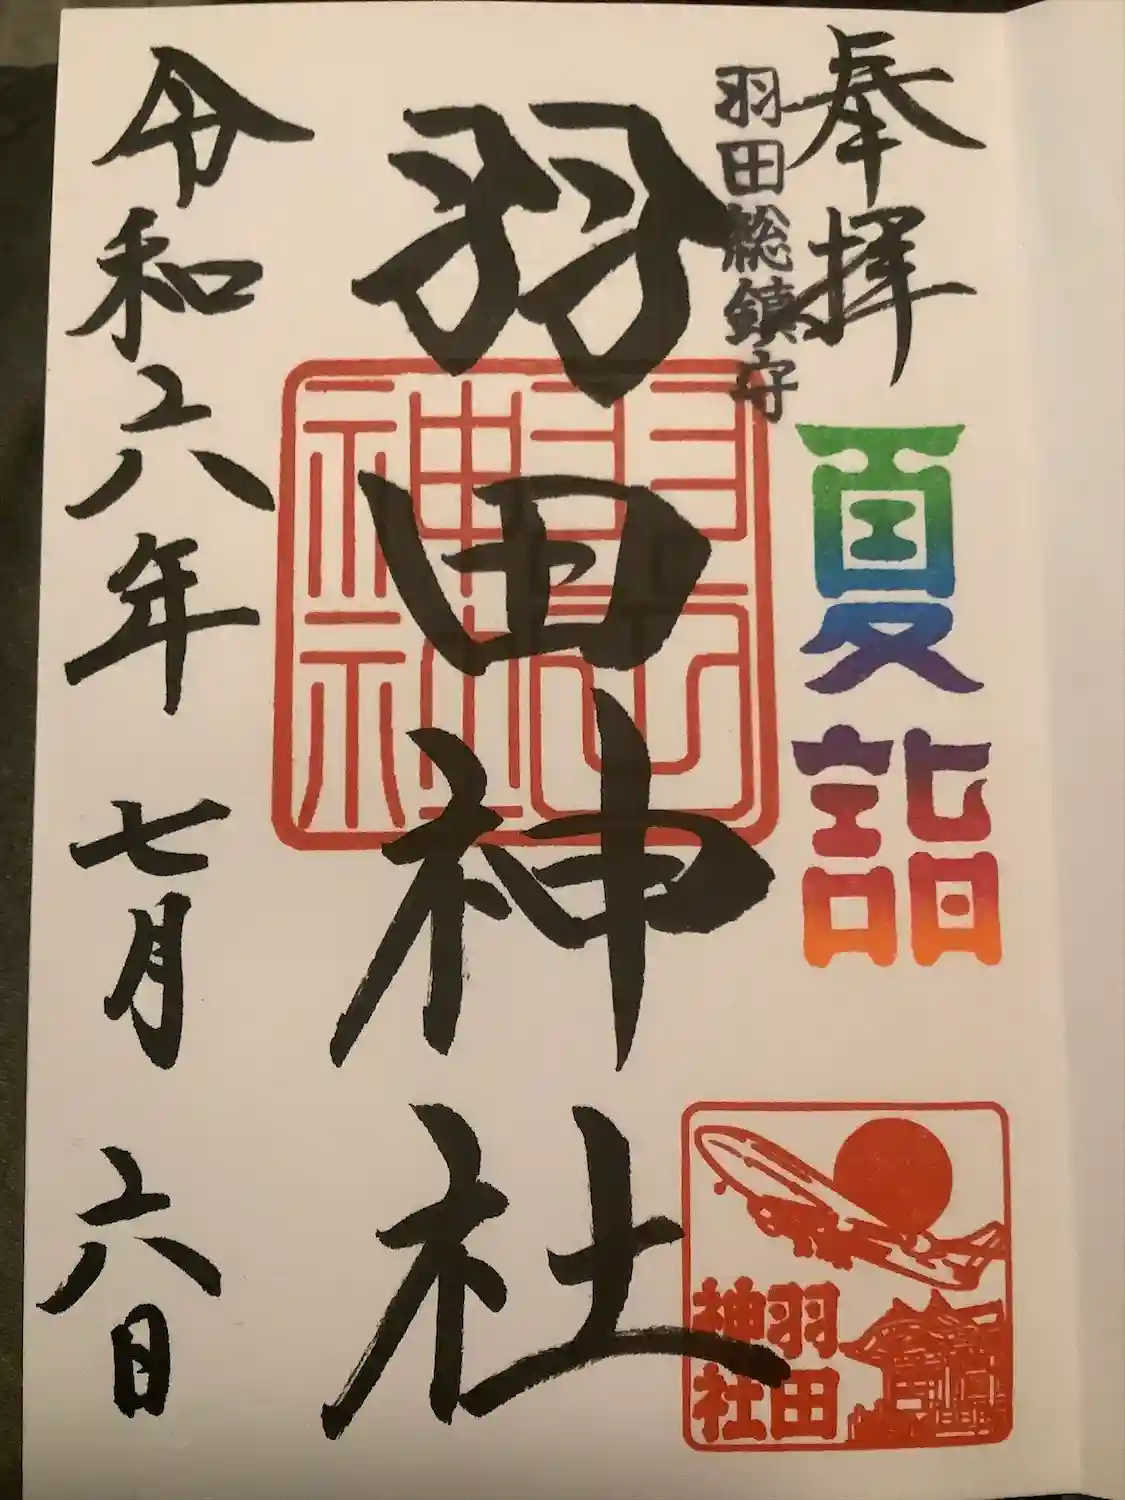 奉拝
羽田総鎮守
夏詣
羽田神社
羽田神社
羽田
神社
令和六年 七月 六日